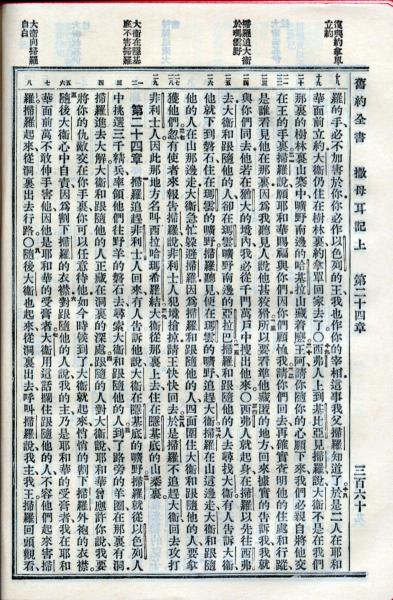 復與約拿單
立約
掃羅追大衛
於瑪雲野
大衛在隱基
底不害掃羅
大衛向掃羅
自白
舊約全書 撒母耳記上 第二十四章 三百六十
羅的手必不加害於你你必作以色列的王我也作你的宰相這事我父掃羅知道了於是二人在耶和
華面前立約大衛仍住在樹林裏約拿單回家去了○西弗人上到基比亞見掃羅說大衛不是在我們
那裏的樹林裏山寨中曠野南邊的哈基拉山藏着麼王阿請你隨你的心願下來我們必親自將他交
在王的手裏掃羅說願耶和華賜福與你們因你們顧恤我請你們回去再確實查明他的住處和行蹤
是誰看見他在那裏因爲我聽見人說他甚狡猾所以要看準他藏匿的地方回來據實的告訴我我就
與你們同去他若在猶大的境內我必從千門萬戶中搜出他來○西弗人就起身在掃羅以先往西弗
去大衛和跟隨他的人卻在瑪雲曠野南邊的亞拉巴掃羅和跟隨他的人去尋找大衛有人告訴大衛
他就下到磐石住在瑪雲的曠野掃羅聽見便在瑪雲的曠野追趕大衛掃羅在山這邊走大衛和跟隨
他的人在山那邊走大衛急忙躲避掃羅因爲掃羅和跟隨他的人四面圍住大衛和跟隨他的人要拿
獲他們忽有使者來報告掃羅說非利士人犯境搶掠請王快快回去於是掃羅不追趕大衛回去攻打
非利士人因此那地方名叫西拉哈瑪希羅結大衛從那裏上去住在隱基底的山寨裏
第二十四章 掃羅追趕非利士人回來有人告訴他說大衛在隱基底的曠野掃羅就從以色列人
中挑選三千精兵率領他們往野羊的磐石去尋索大衛和跟隨他的人到了路旁的羊圈在那裏有洞
掃羅進去大解大衛和跟隨他的人正藏在洞裏的深處跟隨的人對大衛說耶和華曾應許你說我要
將你的仇敵交在你手裏你可以任意待他如今時候到了大衛就起來悄悄的割下掃羅外袍的衣襟
隨後大衛心中自責因爲割下掃羅的衣襟對跟隨他的人說我的主乃是耶和華的受膏者我在耶和
華面前萬不敢伸手害他因他是耶和華的受膏者大衛用這話攔住跟隨他的人不容他們起來害掃
羅掃羅起來從洞裏出去行路○隨後大衛也起來從洞裏出去呼叫掃羅說我主我王掃羅回頭觀看